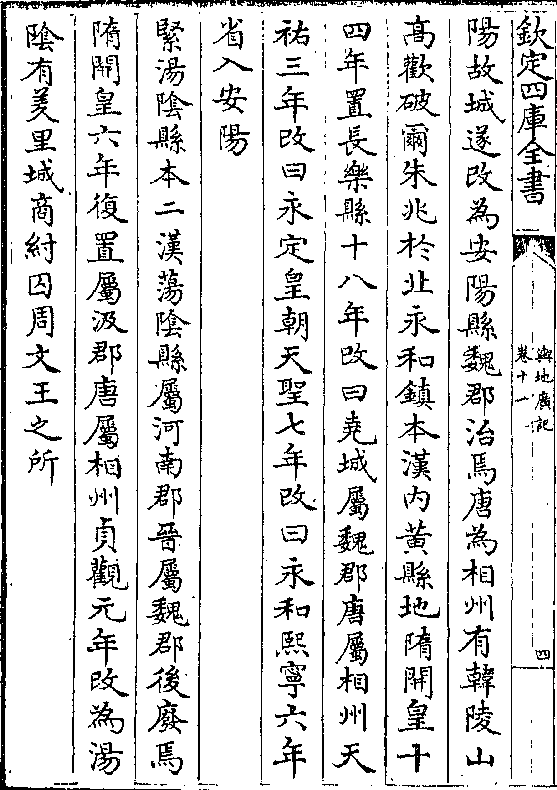 欽定四庫全書
輿地廣記
卷十一
四
陽故城遂改為安陽縣魏郡治焉唐為相州有韓陵山
髙歡破爾朱兆於此永和鎮本漢内黄縣地隋開皇十
四年置長樂縣十八年改曰堯城屬魏郡唐屬相州天
祐三年改曰永定皇朝天聖七年改曰永和熙寧六年
省入安陽
緊湯陰縣本二漢蕩陰縣屬河南郡晉屬魏郡後廢焉
隋開皇六年復置屬汲郡唐屬相州貞觀元年改為湯
陰有羑里城商紂囚周文王之所